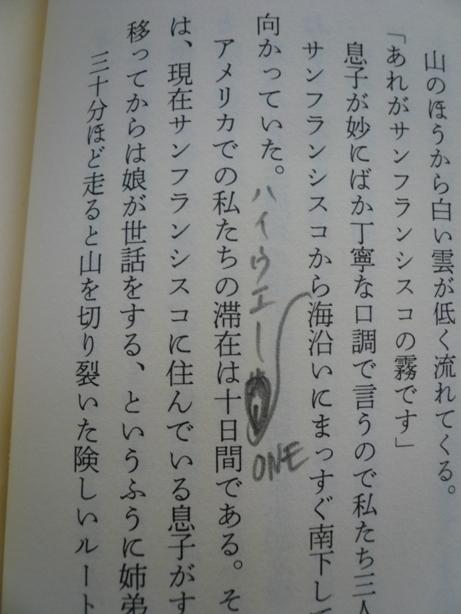 山のほうから白い雲が低く流れてくる。
「あれがサンフランシスコの霧です」
息子が妙にばか丁寧な口調で言うので私たち三人
サンフランシスコから海沿いにまっすぐ南下して
向かっていた。
ハイウエー
ONE
アメリカでの私たちの滞在は十日間である。そ
は、現在サンフランシスコに住んでいる息子がす
移ってからは娘が世話をする、というふうに姉弟
三十分ほど走ると山を切り裂いた険しいルート